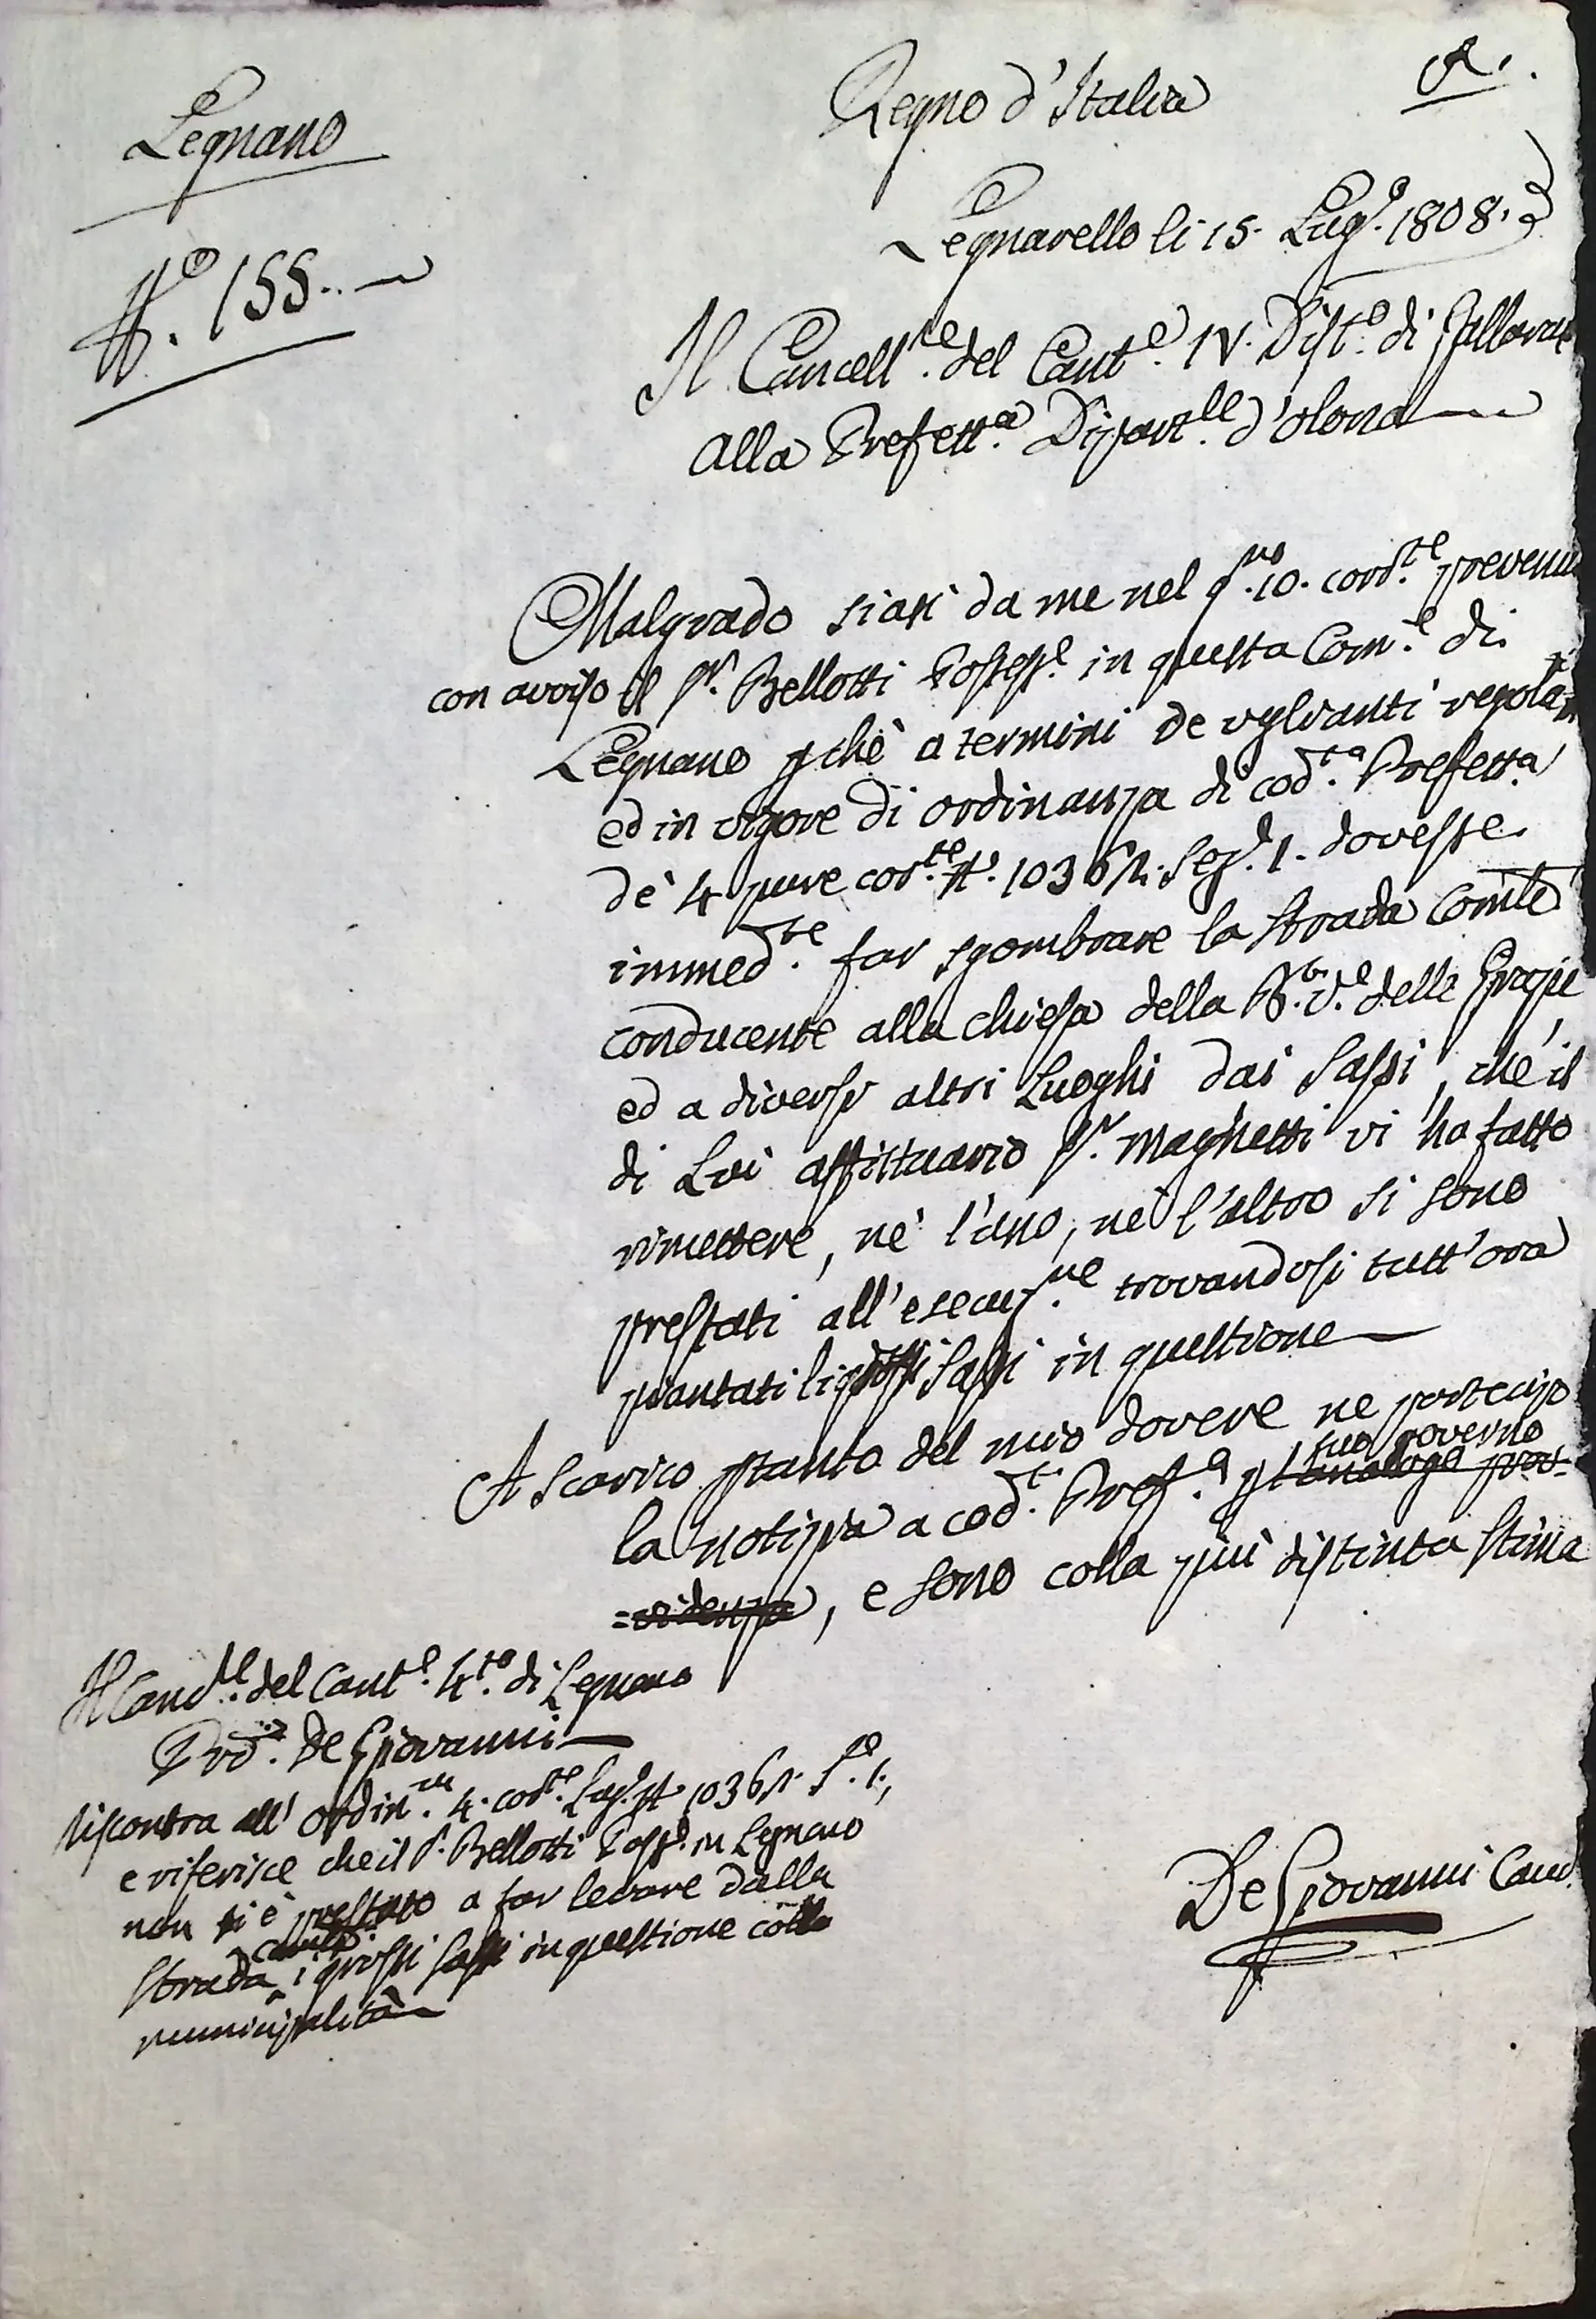 Legnano
N.º 155.
Regno d'Italia
A.
Legnarello li 15. Lug.º 1808.
Il Cancell.re del Cant.e IV. Dist.º di Gallarate
Alla Prefett.a Dipart.le d'Olona
Malgrado siasi da me nel g.no 10. corr.te prevenu
con avviso il S.r Bellotti Possess.e in questa Com.e di
Legnano pchè a termini de veglianti regola
ed in vigore di ordinanza di cod.ta Prefett.a
de' 4 pure cor.te N. 10361. Sez. 1. dovesse
immed.te far sgombrare la strada Comle
conducente alla chiesa della B. V.e delle Grazie
ed a diversi altri Luoghi dai Sassi, che il
di Lui affittuario S.r Maghetti vi ha fatto
rimettere, nè l'uno, nè l'altro si sono
prestati all'esecuz.ne trovandosi tutt'ora
piantati li grossi Sassi in questione
A scarico ptanto del mio dovere ne partecipo
suo governo
la notizia a cod.t Pref.a pl'analoga prov=
=videnza, e sono colla più distinta stima
Il Canc.le del Cant.e 4.to di Legnano
De Giovanni
Riscontra all'ordin. 4. cor.te Lug.º N. 10361. S.e 1.,
e riferisce che il S. Bellotti Poss.e in Legnano
non si è prestato a far levare dalla
comle
strada i grossi sassi in questione colla
municipalità
De Giovanni Canc.